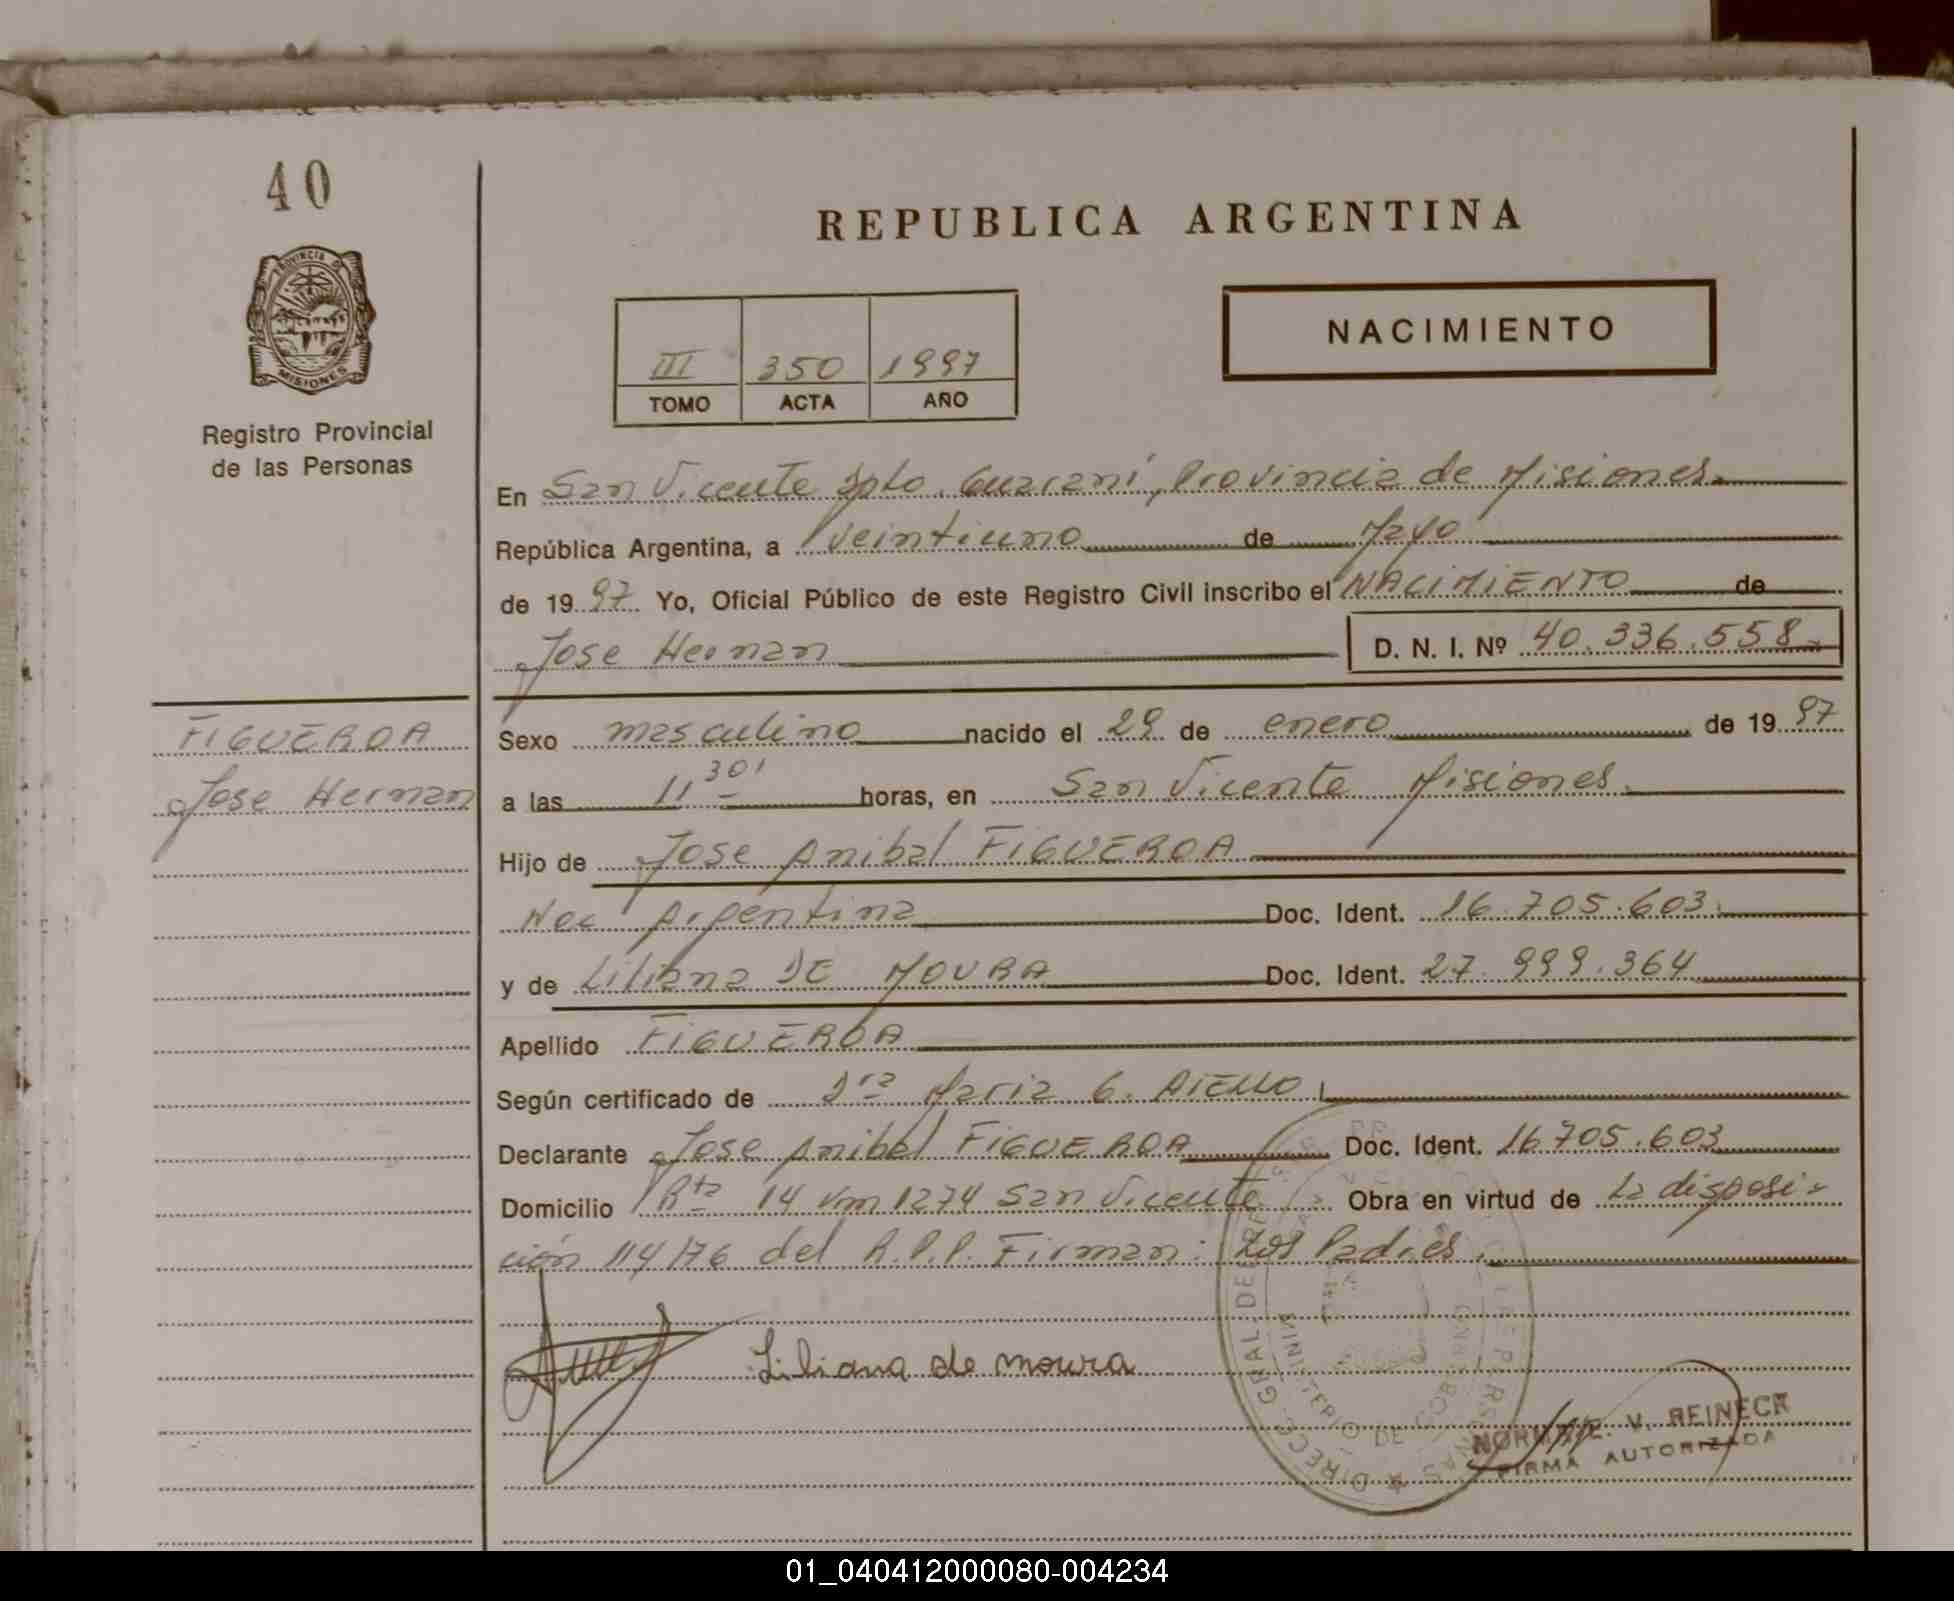 40
REPUBLICA ARGENTINA
PROVINCIA DE
MISIONES
NACIMIENTO
III 350 1997
TOMO ACTA AÑO
Registro Provincial
de las Personas
En San Vicente Dpto. Guaraní, Provincia de Misiones.
República Argentina, a veintiuno de Mayo
de 1997 Yo, Oficial Público de este Registro Civil inscribo el NACIMIENTO de
Jose Hernan D. N. I. Nº 40.336.558
FIGUEROA
Jose Hernan
Sexo masculino nacido el 29 de enero de 1997
a las 11 30' horas, en San Vicente Misiones.
Hijo de Jose Anibal FIGUEROA
Nac Argentina Doc. Ident. 16.705.603.
y de Liliana DE MOURA Doc. Ident. 27.999.364
Apellido FIGUEROA
Según certificado de Dra Maria G. AIELLO
Declarante Jose Anibal FIGUEROA Doc. Ident. 16705.603
Domicilio Rta 14 Km 1274 San Vicente Obra en virtud de La disposi-
ción 114/76 del R.P.P. Firman: Los Padres.
Liliana de moura
DIRECC. GRAL. DE
MINISTERIO DE GOB
V. REINECK
FIRMA AUTORIZADA
01_040412000080-004234